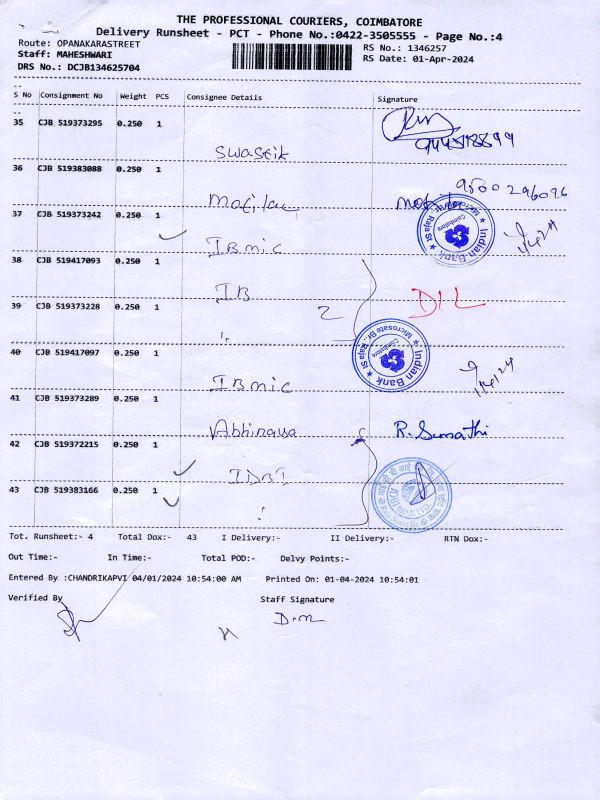 THE PROFESSIONAL COURIERS, COIMBATORE
Delivery Runsheet - PCT - Phone No.:0422-3505555 - Page No.:4
Route: OPANAKARASTREET
RS No.: 1346257
Staff: MAHESHWARI
RS Date: 01-Apr-2024
DRS No.: DCJB134625704
S No Consignment No Weight PCS Consignee Details Signature
35 CJB 519373295 0.250 1
swastik
36 CJB 519383088 0.250 1
9500296096
Motilal
37 CJB 519373242 0.250 1
Indian Bank
Microsate Br., Raja St
Coimbatore
IBmic
38 CJB 519417093 0.250 1
IB
DIL
39 CJB 519373228 0.250 1
2
"
40 CJB 519417097 0.250 1
Indian Bank
Microsate Br., Raja St
Coimbatore
1/4/24
IBmic
41 CJB 519373289 0.250 1
Abhinaya R. Sumathi
42 CJB 519372215 0.250 1
IDBI
43 CJB 519383166 0.250 1
Tot. Runsheet:- 4 Total Dox:- 43 I Delivery:- II Delivery:- RTN Dox:-
Out Time:- In Time:- Total POD:- Delvy Points:-
Entered By :CHANDRIKAPVI 04/01/2024 10:54:00 AM Printed On: 01-04-2024 10:54:01
Verified By Staff Signature